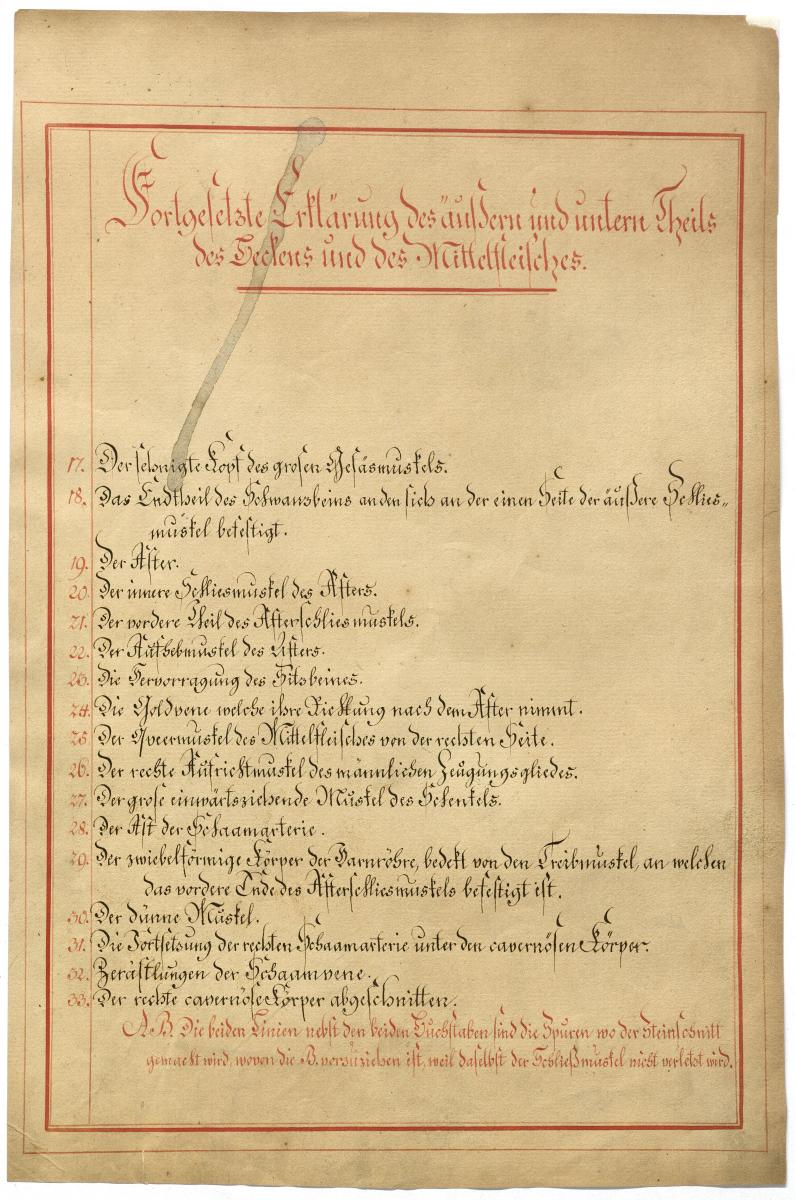 Fortgesetzte Erklärung des äußern und untern Theils
des Beckens und des Mittelfleisches.
17. Der sehnigte Kopf des grosen Gesäsmuskels.
18. Das Endtheil des Schwansbeins an den sich an der einen Seite der äußere Schlies=
muskel befestigt.
19. Der After.
20. Der innere Schliesmuskel des Afters.
21. Der vordere Theil des Afterschliesmuskels.
22. Der Aufhebmuskel des Afters.
23. Die Hervorragung des Sitsbeines.
24. Die Goldvene welche ihre Richtung nach dem After nimmt.
25. Der Qveermuskel des Mittelfleisches von der rechten Seite.
26. Der rechte Aufrichtmuskel des männlichen Zeugungsgliedes.
27. Der grose einwärtsziehende Muskel des Schenkels.
28. Der Ast der Schaamarterie.
29. Der zwiebelförmige Körper der Harnröhre, bedekt von den Treibmuskel, an welchen
das vordere Ende des Afterschliesmuskels befestigt ist.
30. Der dünne Muskel.
31. Die Fortsetsung der rechten Schaamarterie unter den cavernösen Körper.
32. Zerästlungen der Schaamvene.
33. Der rechte cavernöse Körper abgeschnitten.
A.B. Die beiden Linien nebst den beiden Buchstaben sind die Spuren wo der Steinschnitt
gemacht wird, wovon die B. vorzuziehen ist, weil daselbst der Schließmuskel nicht verletst wird.